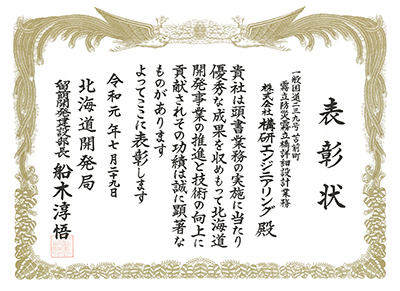 表彰状
一般国道二三九号 苫前町
霧立防災霧立橋詳細設計業務
株式会社構研エンジニアリング 殿
貴社は頭書業務の実施に当たり
優秀な成果を収めもって北海道
開発事業の推進と技術の向上に
貢献されその功績は誠に顕著な
ものがあります
よってここに表彰します
令和元年七月二十九日
北海道開発局
留萌開発建設部長 船木淳悟